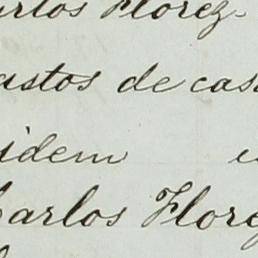 arlos Florez
astos de cas
idem
Carlos Flore